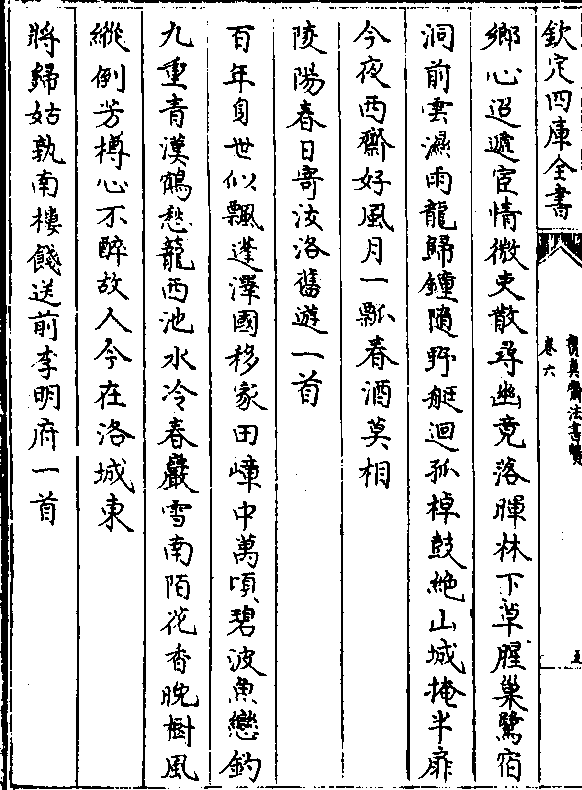 欽定四庫全書
寶真齋法書贊
卷六
五
鄉心迢遞宦情微吏散尋幽竟落暉林下草腥巢鷺宿
洞前雲濕雨龍歸鐘隨野艇迴孤棹鼓絶山城掩半扉
今夜西齋好風月一瓢春酒莫相
陵陽春日寄汝洛舊遊一首
百年身世似飄蓬澤國移家田嶂中萬頃碧波魚戀釣
九重青漢鶴愁籠西池水冷春巖雪南陌花香晚樹風
縱倒芳樽心不醉故人今在洛城東
將歸姑孰南樓餞送前李明府一首